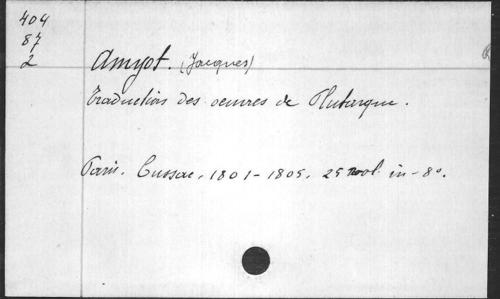 404
87
2
Amyot. (Jacques)
Traduction des oeuvres de Plutarque.
Paris. Cussac, 1801-1805, 25 vol. in-8o.